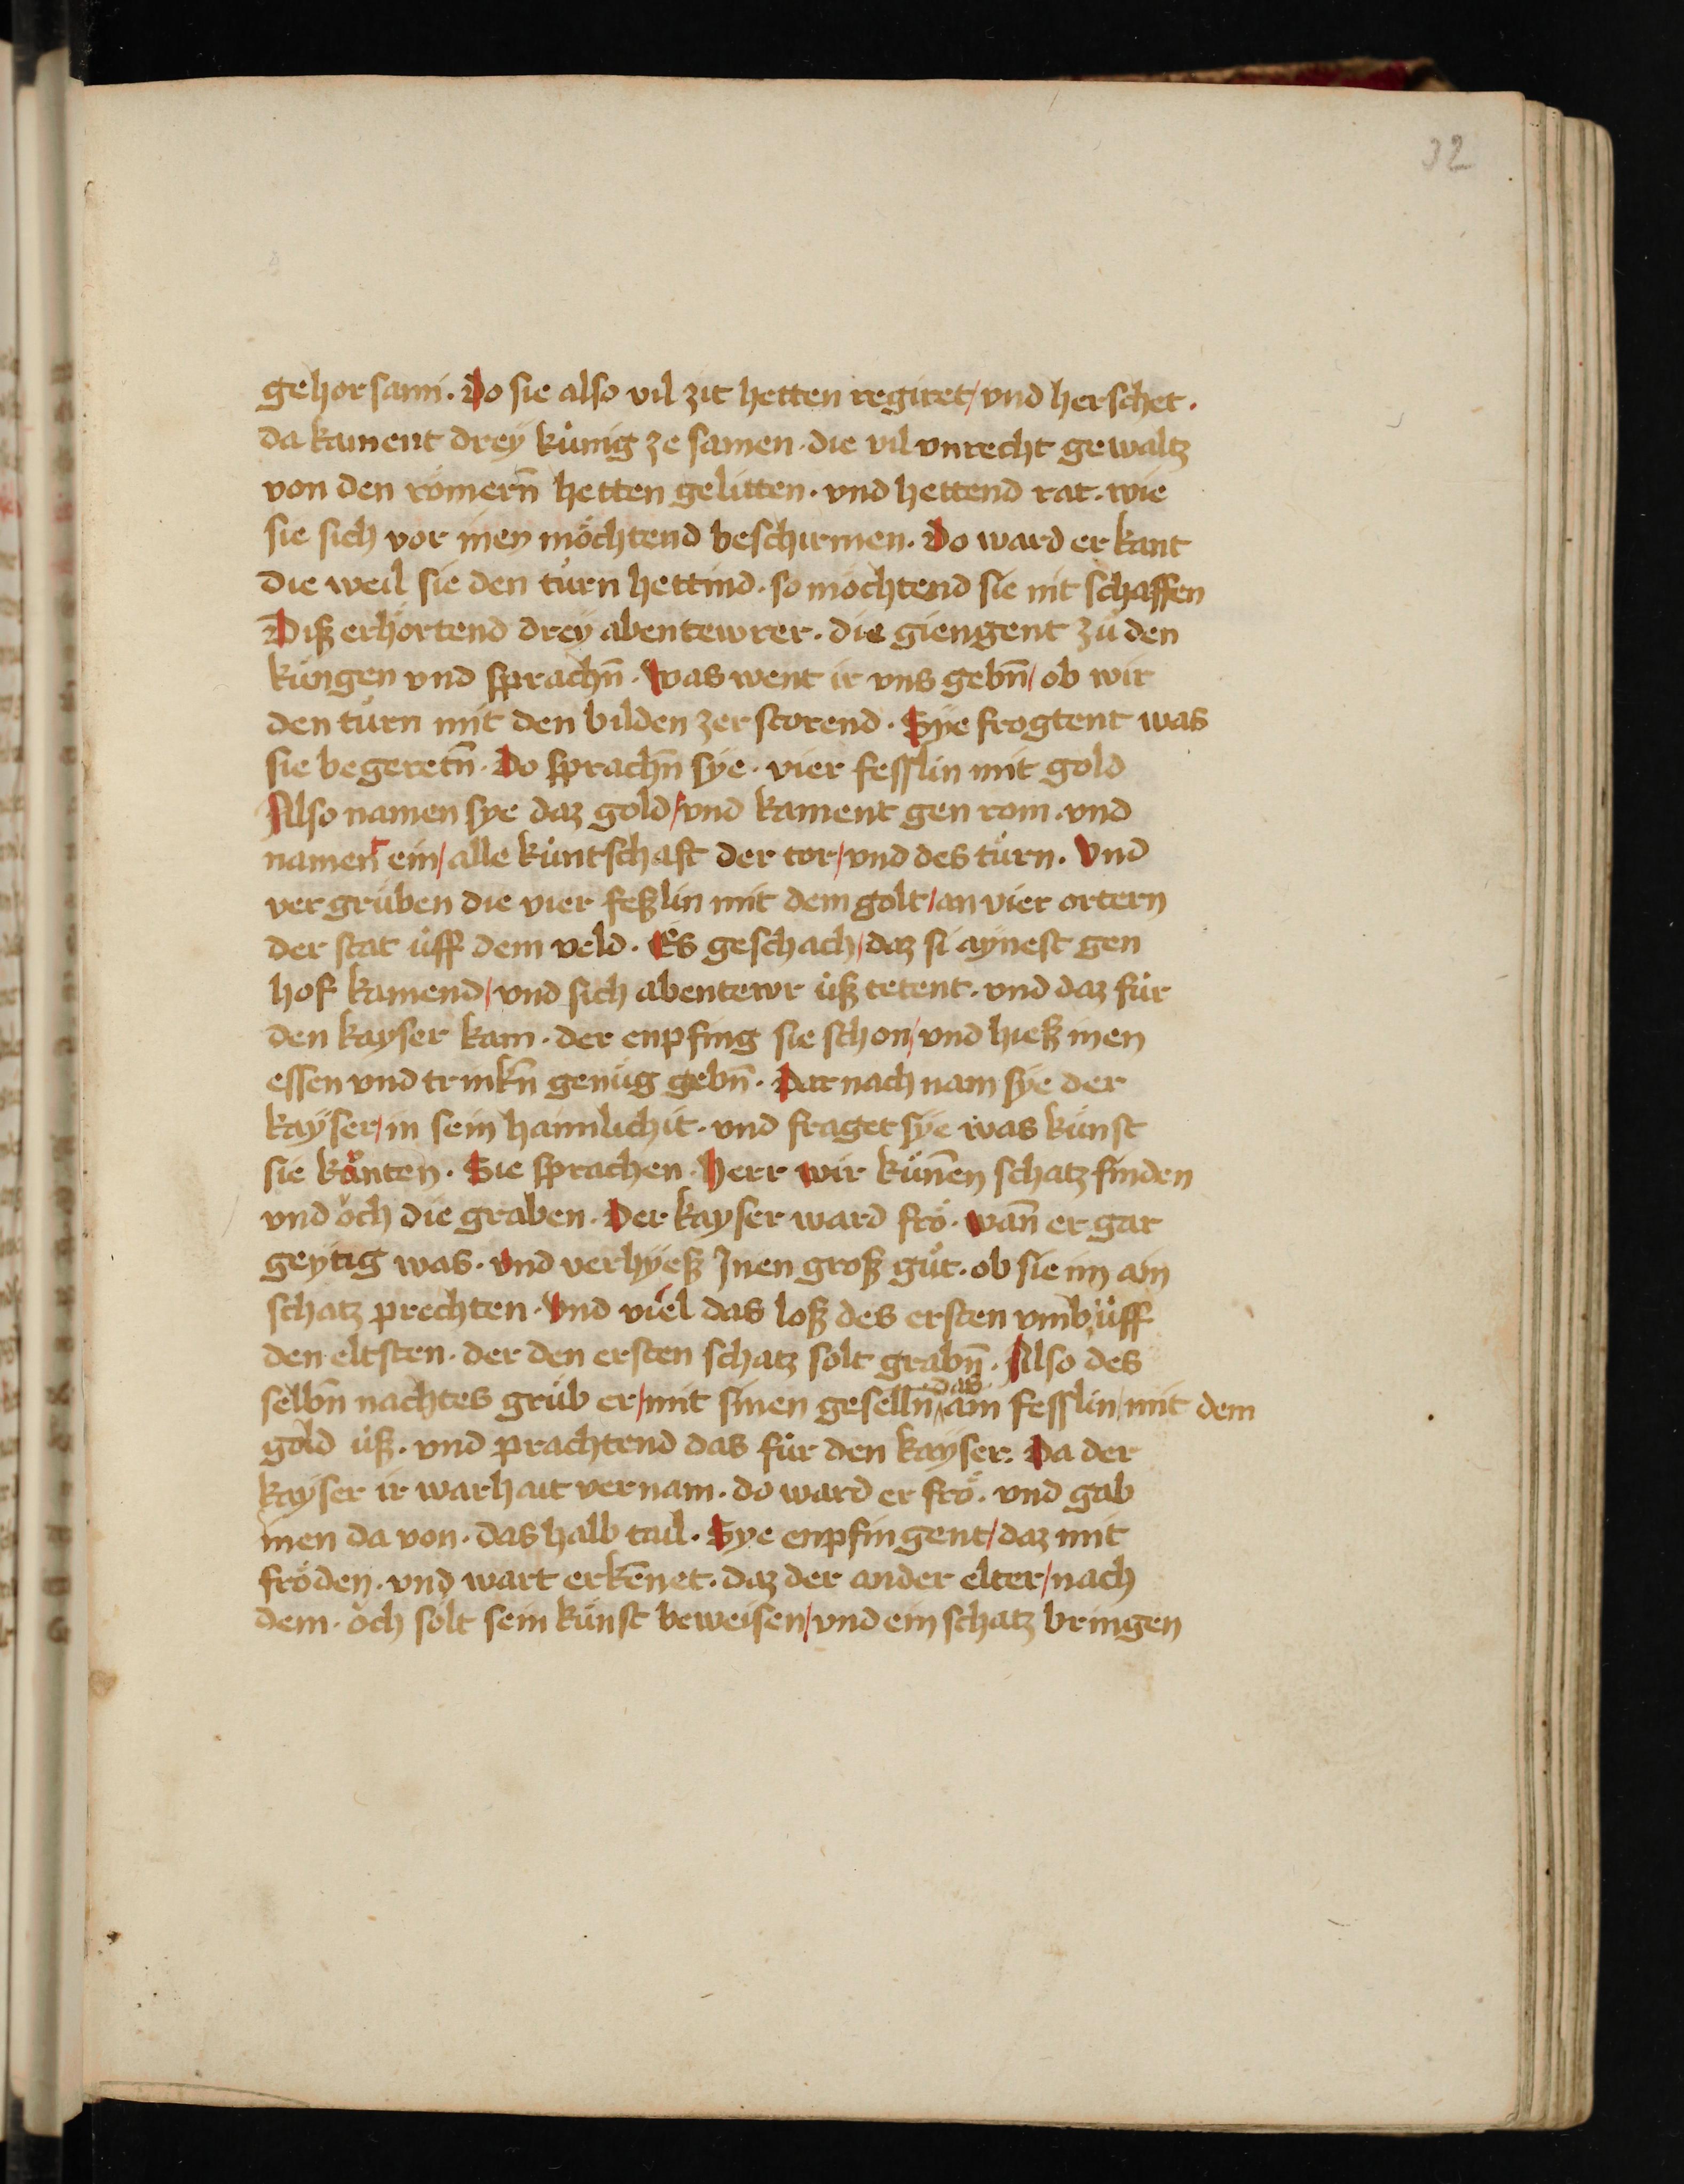 32
gehorsam. Do sie also vil zit hetten regiret / vnd herschet.
da kament drey kúnig ze samen. die vil vnrecht gewaltz
von den römern̄ hetten gelitten. vnd hettend rat. wie
sie sich vor inen möchtend beschirmen. Do ward er kant
die weil sie den túrn hettind. so möchtend sie nit schaffen
Diß erhörtend drey abentewrer. die giengent zů den
kúngen vnd sprachn̄. Was went ir vns gebn̄ / ob wir
den túrn mit den bilden zer störend. Sye frogtent was
sie begeretn̄. Do sprachn̄ sye. vier fesslin mit gold
Also namen sye daz gold / vnd kament gen rom. vnd
namen ein / alle kúntschaft der tor / vnd des túrn. Vnd
ver grúben die vier feßlin mit dem golt / an vier ortern
der stat ůff dem veld. Es geschach / daz si aynest gen
hof kamend / vnd sich abentewr ůß tetent. vnd daz fúr
den kayser kam. der enpfing sie schon / vnd hieß inen
essen vnd trinkn̄ genůg gebn̄. Dar nach nam sye der
kaÿser / in sein haimlichit. vnd fraget sÿe was kúnst
sie kånten. Sie sprachen. Herr wir kúnēn schatz finden
vnd och die graben. Der kayser ward fro. wan̄ er gar
geytig was. vnd verhÿeß Jnen groß gůt. ob sie im ain
schatz prechten. Vnd viel das loß des ersten vmb ůff
den eltsten. der den ersten schatz solt grabn̄. Also des
selbn̄ nachtes grůb er / mit sinen geselln̄ das ain fesslin / mit dem
gold ůß. vnd prachtend das fúr den kaÿser. Da der
kaÿser ir warhait vernam. do ward er fro. vnd gab
inen da von. das halb tail. Sye enpfingent / daz mit
fröden. vnd wart erkēnet. daz der ander elter / nach
dem. och solt sein kúnst beweisen / vnd ein schatz bringen